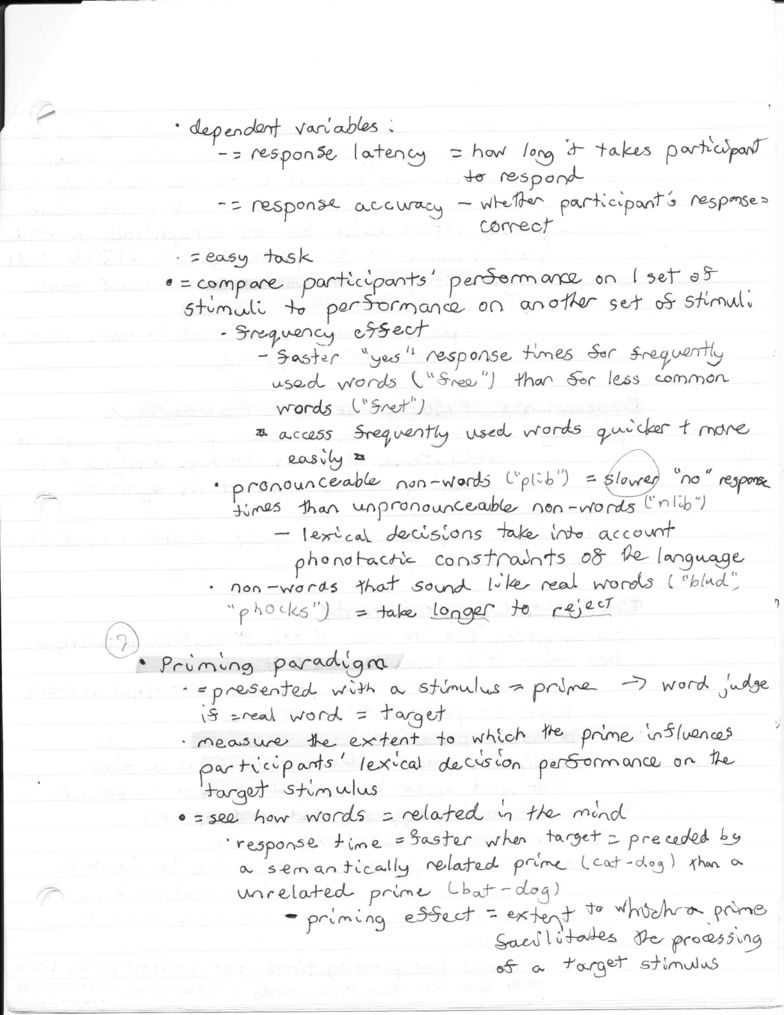 • dependent variables :
- = response latency = how long it takes participant
to respond
- = response accuracy - whether participant's response =
correct
• = easy task
• = compare participants' performance on 1 set of
stimuli to performance on another set of stimuli
• frequency effect
- faster "yes" response times for frequently
used words ("free") than for less common
words ("fret")
access frequently used words quicker + more
easily
• pronounceable non-words ("plib") = slower "no" response
times than unpronounceable non-words ("nlib")
- lexical decisions take into account
phonotactic constraints of the language
• non-words that sound like real words ("blud",
"phocks") = take longer to reject
?
• Priming paradigm
• = presented with a stimulus = prime → word judge
if = real word = target
• measure the extent to which the prime influences
participants' lexical decision performance on the
target stimulus
• = see how words = related in the mind
• response time = faster when target = preceded by
a semantically related prime (cat-dog) than a
unrelated prime (bat-dog)
- priming effect = extent to which a prime
facilitates the processing
of a target stimulus